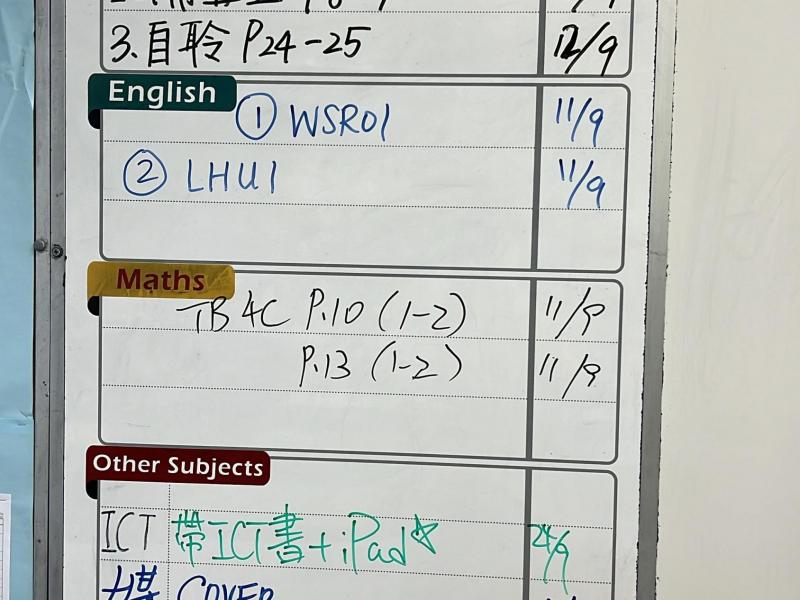 3. 自聆 P24-25 12/9
English
① WSR01 11/9
② LHU1 11/9
Maths
TB 4C P.10 (1-2) 11/9
P.13 (1-2) 11/9
Other Subjects
ICT 帶ICT書+iPad☆ 24/9
COVER